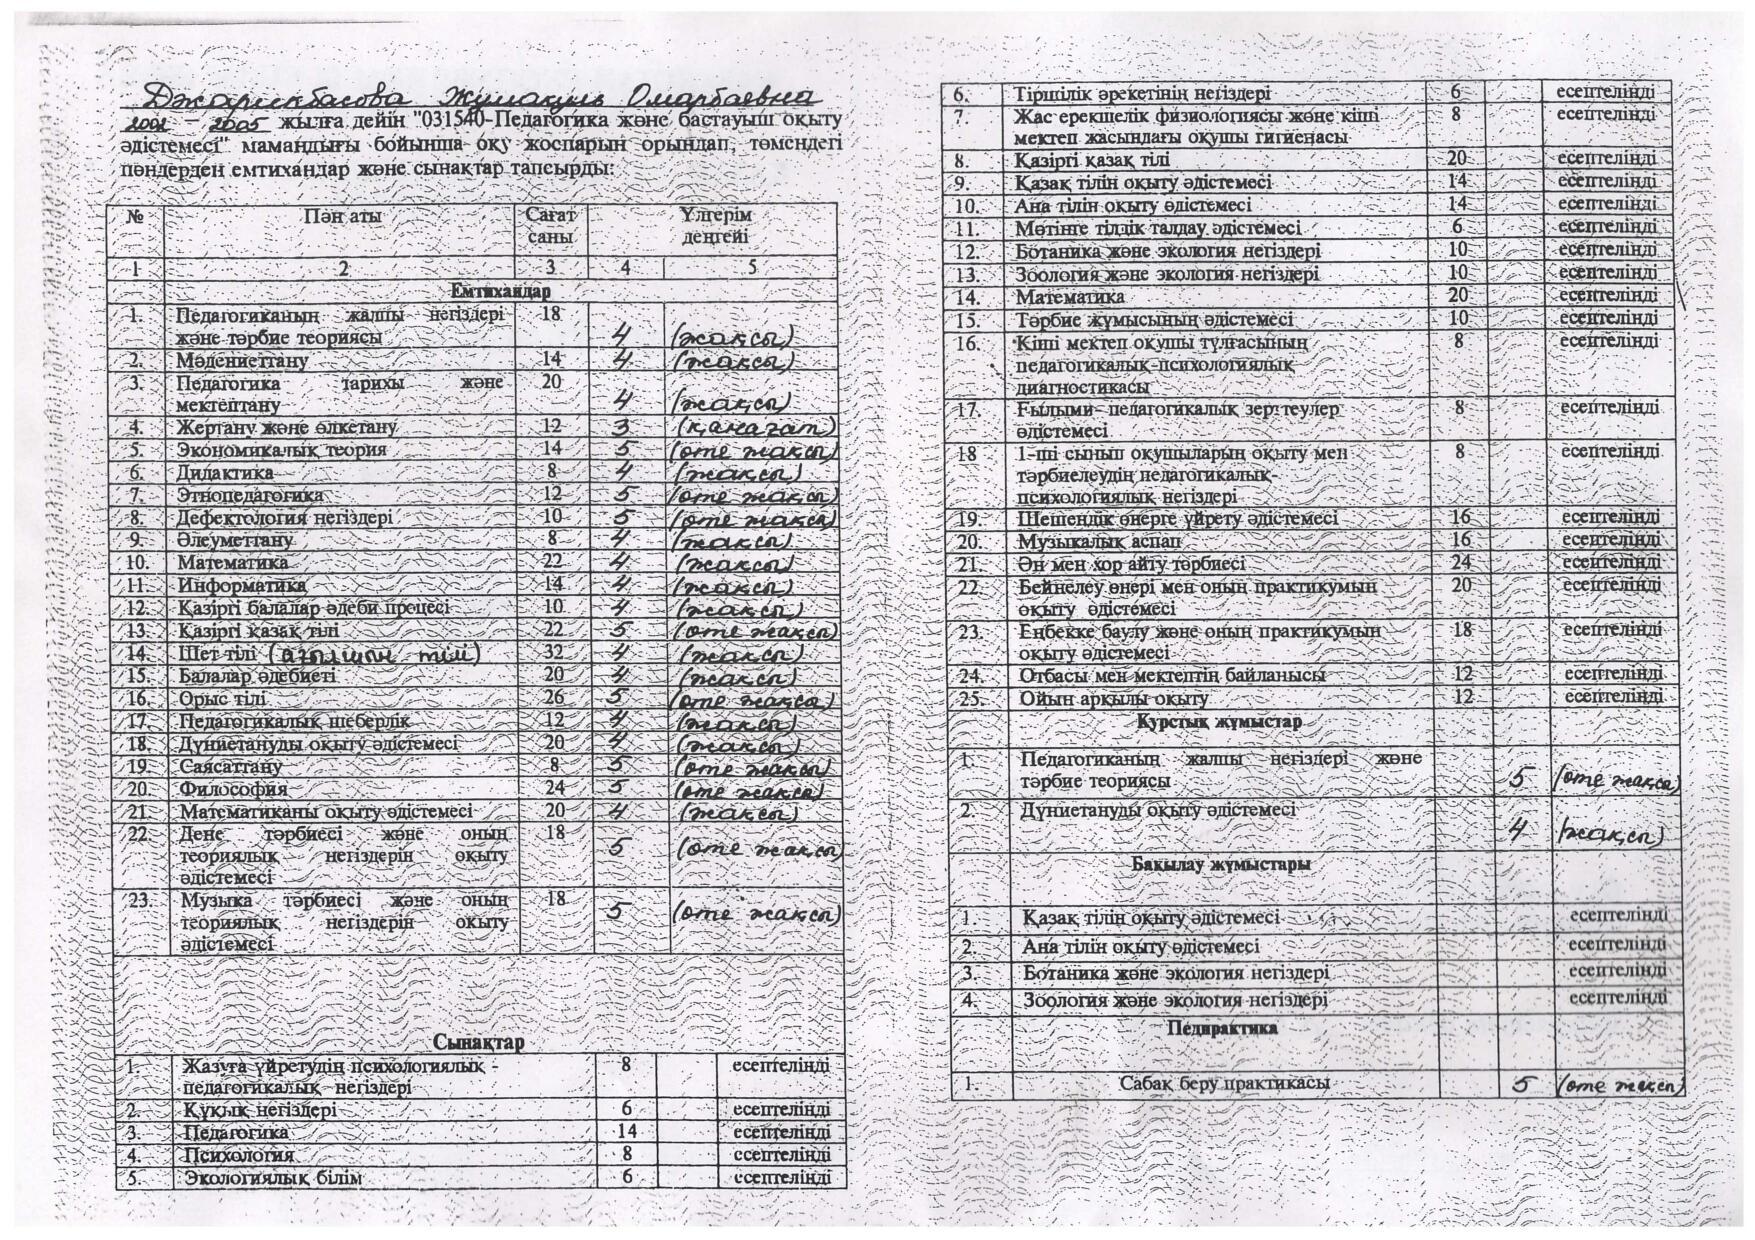 Омарбаевна
2005 жылға дейін "031540-Педагогика және бастауыш оқыту
әдістемесі" мамандығы бойынша оқу жоспарын орындап, төмендегі
пәндерден емтихандар және сынақтар тапсырды:
№ Пән аты Сағат саны Үлгерім деңгейі
1 2 3 4 5
Емтихандар
1. Педагогиканың жалпы негіздері 18
және тәрбие теориясы 4 (жақсы)
2. Мәдениеттану 14 4 (жақсы)
3. Педагогика тарихы және 20
мектептану 4 (жақсы)
4. Жертану және өлкетану 12 3 (қанағат)
5. Экономикалық теория 14 5 (өте жақсы)
6. Дидактика 8 4 (жақсы)
7. Этнопедагогика 12 5 (өте жақсы)
8. Дефектология негіздері 10 5 (өте жақсы)
9. Әлеуметтану 8 4 (жақсы)
10. Математика 22 4 (жақсы)
11. Информатика 14 4 (жақсы)
12. Қазіргі балалар әдеби процесі 10 4 (жақсы)
13. Қазіргі қазақ тілі 22 5 (өте жақсы)
14. Шет тілі (ағылшын тілі) 32 4 (жақсы)
15. Балалар әдебиеті 20 4 (жақсы)
16. Орыс тілі 26 5 (өте жақсы)
17. Педагогикалық шеберлік 12 4 (жақсы)
18. Дүниетануды оқыту әдістемесі 20 4 (жақсы)
19. Саясаттану 8 5 (өте жақсы)
20. Философия 24 5 (өте жақсы)
21. Математиканы оқыту әдістемесі 20 4 (жақсы)
22. Дене тәрбиесі және оның 18
теориялық негіздерін оқыту 5 (өте жақсы)
әдістемесі
23. Музыка тәрбиесі және оның 18
теориялық негіздерін оқыту 5 (өте жақсы)
әдістемесі
Сынақтар
1. Жазуға үйретудің психологиялық - 8 есептелінді
педагогикалық негіздері
2. Құқық негіздері 6 есептелінді
3. Педагогика 14 есептелінді
4. Психология 8 есептелінді
5. Экологиялық білім 6 есептелінді
6. Тіршілік әрекетінің негіздері 6 есептелінді
7. Жас ерекшелік физиологиясы және кіші 8 есептелінді
мектеп жасындағы оқушы гигиенасы
8. Қазіргі қазақ тілі 20 есептелінді
9. Қазақ тілін оқыту әдістемесі 14 есептелінді
10. Ана тілін оқыту әдістемесі 14 есептелінді
11. Мәтінге тілдік талдау әдістемесі 6 есептелінді
12. Ботаника және экология негіздері 10 есептелінді
13. Зоология және экология негіздері 10 есептелінді
14. Математика 20 есептелінді
15. Тәрбие жұмысының әдістемесі 10 есептелінді
16. Кіші мектеп оқушы тұлғасының 8 есептелінді
педагогикалық-психологиялық
диагностикасы
17. Ғылыми- педагогикалық зерттеулер 8 есептелінді
әдістемесі
18 1-ші сынып оқушыларың оқыту мен 8 есептелінді
тәрбиелеудің педагогикалық-
психологиялық негіздері
19. Шешендік өнерге үйрету әдістемесі 16 есептелінді
20. Музыкалық аспап 16 есептелінді
21. Ән мен хор айту тәрбиесі 24 есептелінді
22. Бейнелеу өнері мен оның практикумын 20 есептелінді
оқыту әдістемесі
23. Еңбекке баулу және оның практикумын 18 есептелінді
оқыту әдістемесі
24. Отбасы мен мектептің байланысы 12 есептелінді
25. Ойын арқылы оқыту 12 есептелінді
Курстық жұмыстар
1. Педагогиканың жалпы негіздері және
тәрбие теориясы 5 (өте жақсы)
2. Дүниетануды оқыту әдістемесі
4 (жақсы)
Бақылау жұмыстары
1. Қазақ тілін оқыту әдістемесі есептелінді
2. Ана тілін оқыту әдістемесі есептелінді
3. Ботаника және экология негіздері есептелінді
4. Зоология және экология негіздері есептелінді
Педпрактика
1. Сабақ беру практикасы 5 (өте жақсы)